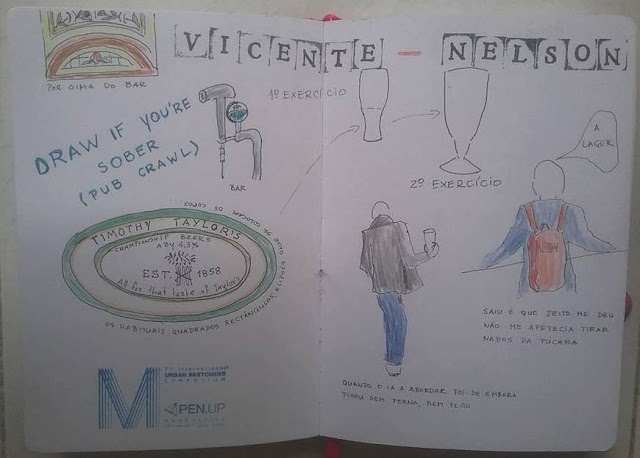 VICENTE - NELSON
POR CIMA DO BAR
DRAW IF YOU'RE
SOBER
(PUB CRAWL)
BAR
1º EXERCÍCIO
2º EXERCÍCIO
A
LAGER
ONDE SE COLOCAM OS COPOS...
TIMOTHY TAYLORIS
CHAMPIONSHIP BEERS
ABV 4,3%
EST. 1858
All for that taste of Taylor's
OS HABITUAIS QUADRADOS RECTÂNGULOS, ELIPSES
M
7th International
URBAN SKETCHERS
SYMPOSIUM
PEN.UP
MANCHESTER
QUANDO O IA A ABORDAR, FOI-SE EMBORA
FICOU SEM PERNA, BEM FEITO
SAIU É QUE JEITO ME DEU
NÃO ME APETECIA TIRAR
NABOS DA PUCARA